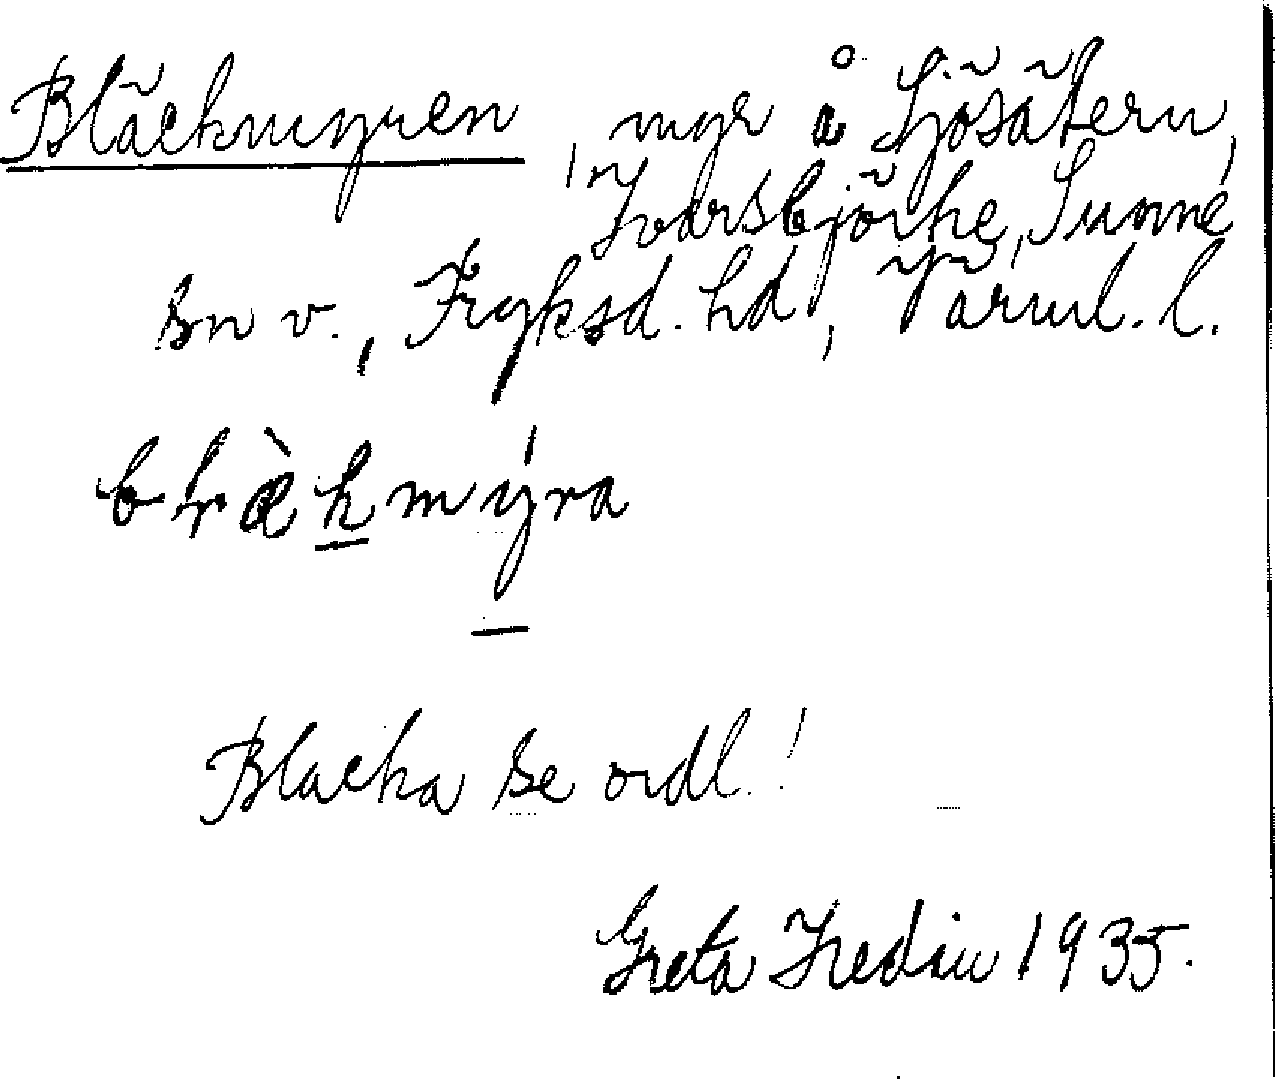 Bläckmyren, myr å Ljösätern,
Ivarsbjörke, Sunne
sn v., Fryksd. hd, Värml. l.
blæ̀kmýra
Blacka se ordl.!
Greta Hedin 1935.